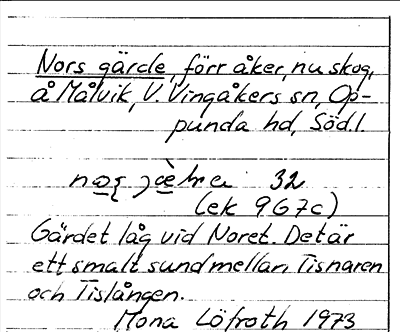 Nors gärde, förr åker, nu skog,
å Målvik, V. Vingåkers sn, Op-
punda hd, Södl.
32
(ek 967c)
Gärdet låg vid Noret. Det är
ett smalt sund mellan Tisnaren
och Tislången.
Mona Löfroth 1973